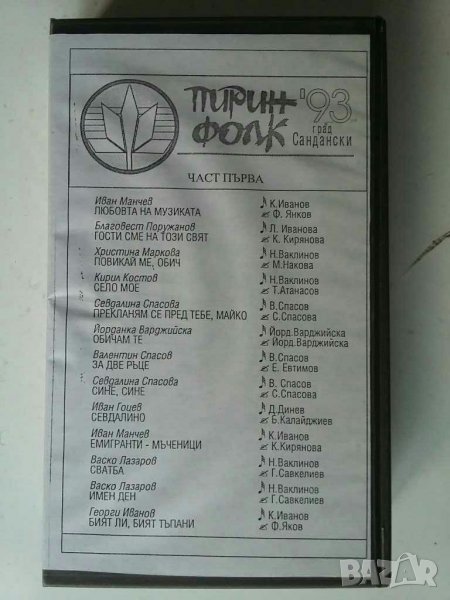 ПИРИН
ФОЛК
'93
град
Сандански
ЧАСТ ПЪРВА
Иван Манчев
ЛЮБОВТА НА МУЗИКАТА
К.Иванов
Ф. Янков
Благовест Поружанов
ГОСТИ СМЕ НА ТОЗИ СВЯТ
Л. Иванова
К. Кирянова
Христина Маркова
ПОВИКАЙ МЕ, ОБИЧ
Н.Ваклинов
М.Накова
Кирил Костов
СЕЛО МОЕ
Н.Ваклинов
Т.Атанасов
Севдалина Спасова
ПРЕКЛАНЯМ СЕ ПРЕД ТЕБЕ, МАЙКО
В.Спасов
С.Спасова
Йорданка Варджийска
ОБИЧАМ ТЕ
Йорд.Варджийска
Йорд.Варджийска
Валентин Спасов
ЗА ДВЕ РЪЦЕ
В.Спасов
Е. Евтимов
Севдалина Спасова
СИНЕ, СИНЕ
В. Спасов
С.Спасова
Иван Гоцев
СЕВДАЛИНО
Д.Динев
Б.Калайджиев
Иван Манчев
ЕМИГРАНТИ - МЪЧЕНИЦИ
К.Иванов
К.Кирянова
Васко Лазаров
СВАТБА
Н.Ваклинов
Г.Савкелиев
Васко Лазаров
ИМЕН ДЕН
Н.Ваклинов
Г.Савкелиев
Георги Иванов
БИЯТ ЛИ, БИЯТ ТЪПАНИ
К.Иванов
Ф.Яков
BAZAR